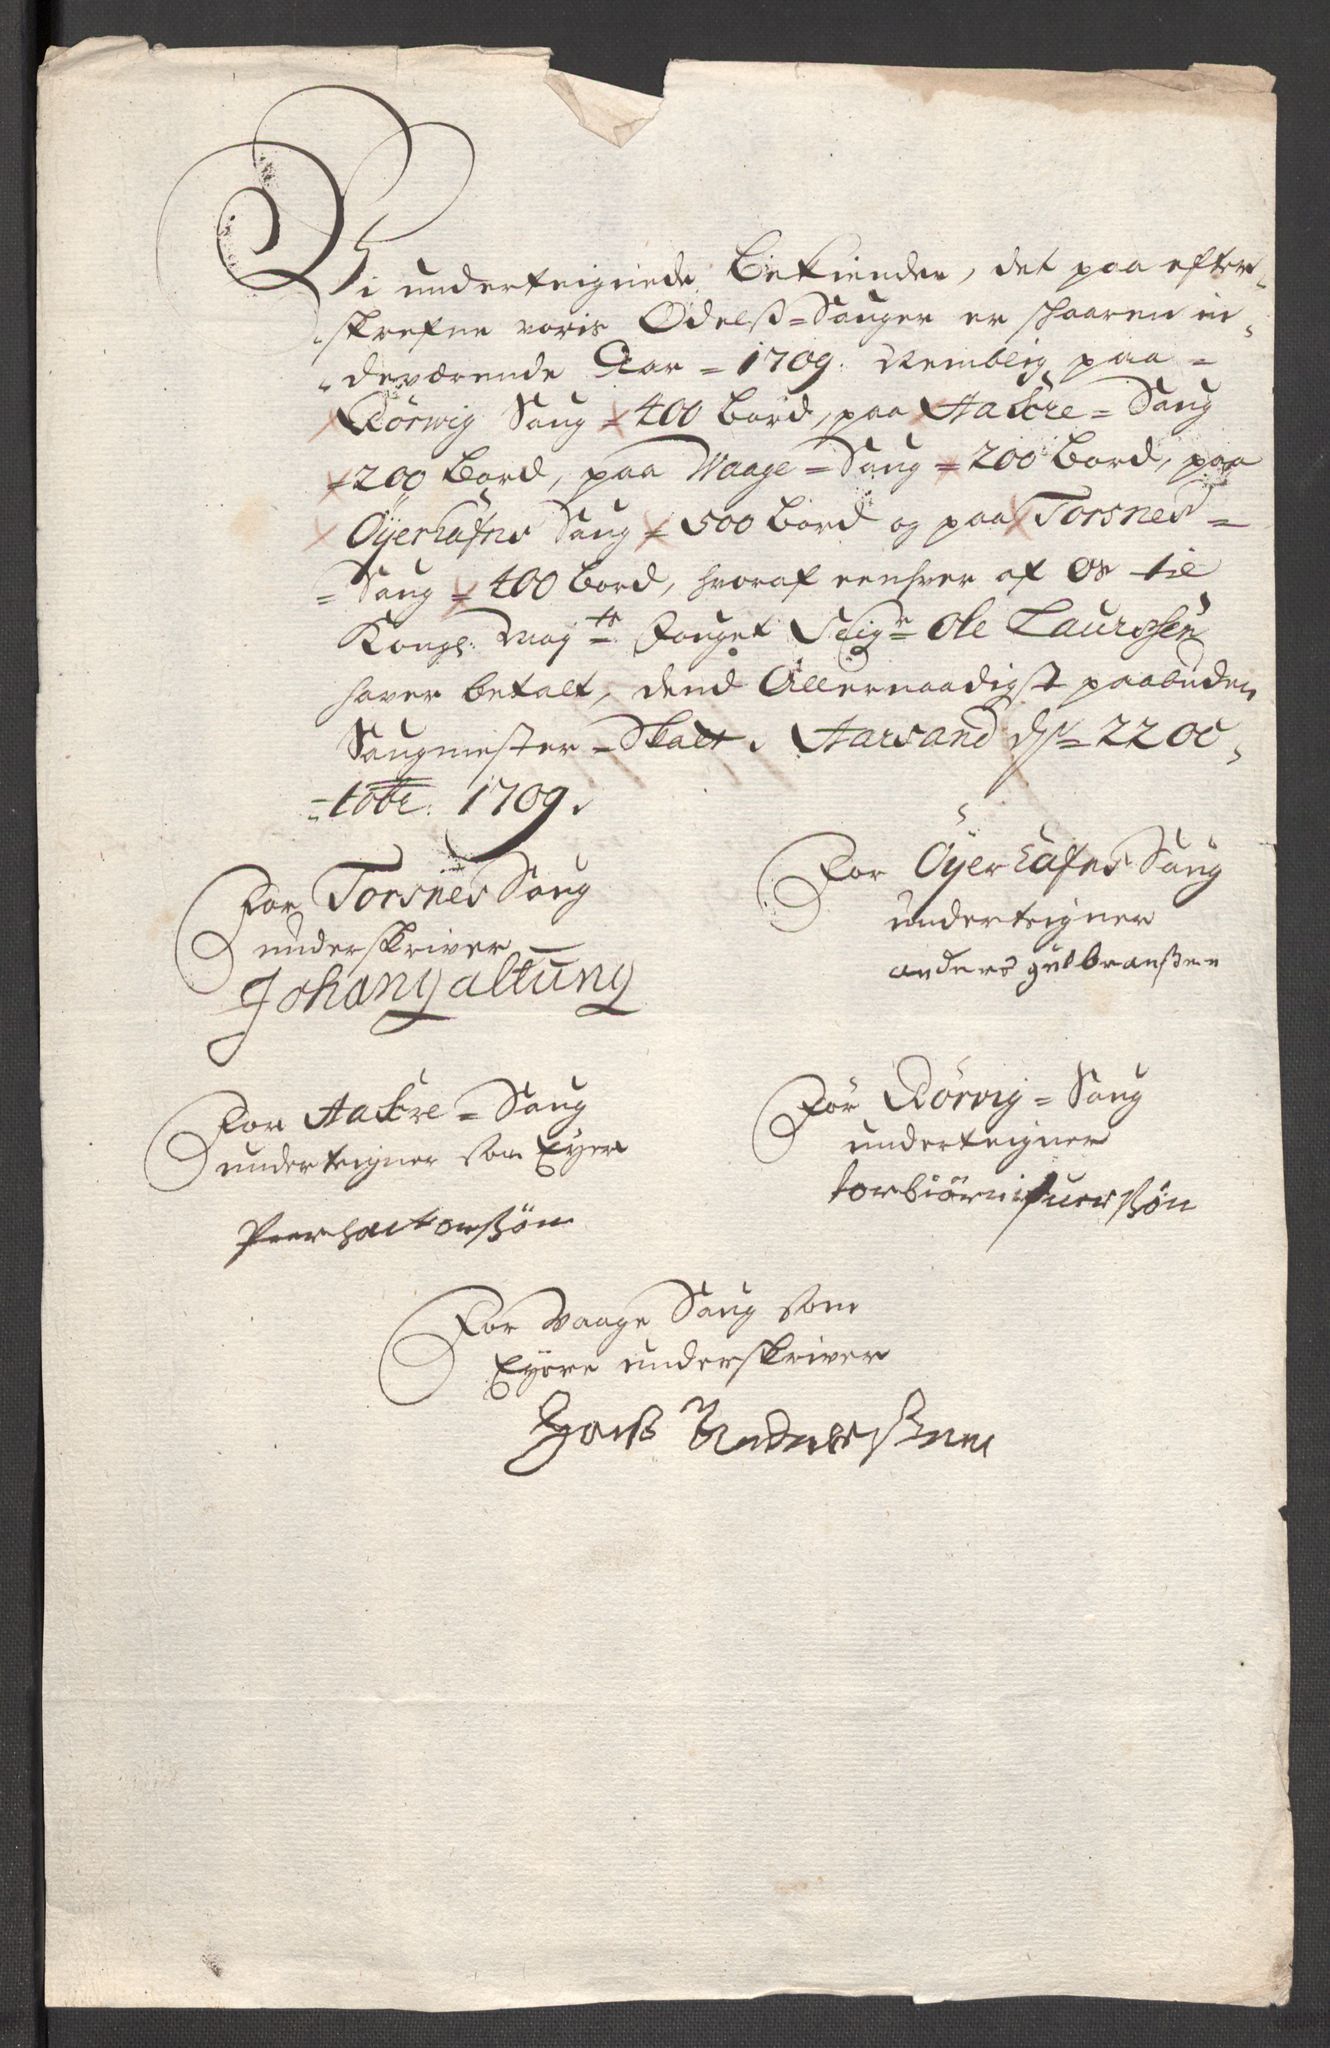 Vi underteignede Bekiender, det paa efter-
skrefne voris Odelß-Sauger er schaaren in-
deværende Aar - 1709. Nemblig paa -
Rörwig Saug - 400 bord, paa Aakre - Saug
- 200 bord, paa Waage - Saug - 200 bord, paa
Öÿerhafns Saug - 500 bord og paa Torsnes -
- Saug - 400 bord, hvoraf eenhver af Os til
Kongl: May:ts Fouget Seigr Ole Laurssen
haver betalt, dend Allernaadigst paabuden
Saugmester - Skatt. Aarsand ds - 22 Oc-
- tobr: 1709.
For Torsnes Saug
underskriver
Johan galtung
For Öÿerhafns Saug
underteigner
anders gulbranßen
For Aakre - Saug
underteigner som Eÿer
Peer
For Rörvig - Saug
underteigner
torbiörn iffuerßön
For Waage Saug som
Eÿere underskriver